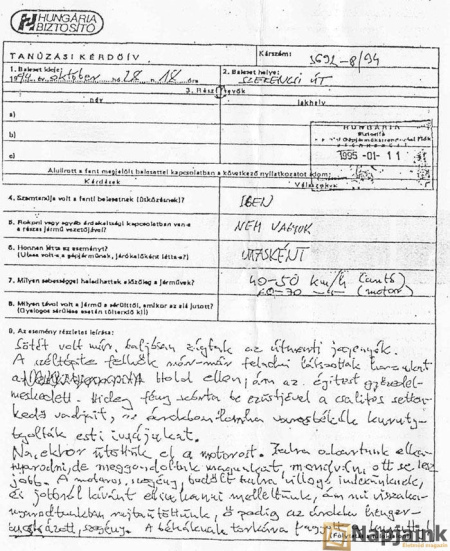 HUNGÁRIA
BIZTOSÍTÓ
TANÚZÁSI KÉRDŐÍV
Kárszám: 3692-8/94
1. Baleset ideje: 1994 év október hó 28 n. 18 óra
2. Baleset helye: SZERENCSI ÚT
3. Résztvevők
név
lakhely
a)
b)
c)
HUNGÁRIA
Biztosító
1995 -01- 11
Alulírott a fent megjelölt balesettel kapcsolatban a következő nyilatkozatot adom:
Kérdések
Válaszok
4. Szemtanúja volt a fenti balesetnek (ütközésnek)?
IGEN
5. Rokoni vagy egyéb érdekeltségi kapcsolatban van-e
a részes jármű vezetőjével?
NEM VAGYOK
6. Honnan látta az eseményt?
(Utasa volt-e a gépjárműnek, járókelőként látta-e?)
UTASKÉNT
7. Milyen sebességgel haladhattak előzőleg a járművek?
40-50 km/h (autó)
60-70 -"- (motor)
8. Milyen távol volt a jármű a sérülttől, amikor az elá jutott?
(Gyalogos sérülése esetén töltendő ki)
9. Az esemény részletes leírása:
Sötét volt már, baljósan zúgtak az útmenti jegenyék.
A széltépte felhők már-már feladni látszottak harcukat
a Hold ellen, ám az égitest győzedel-
meskedett. Hideg fény szórta be ezüstjével a csalitos
vadjait, s az árokban
esti imájukat.
Na, ekkor ütöttük el a motorost. Balra akartunk elka-
nyarodni, de meggondoltuk magunkat, mondván ott se lesz
jobb. A motoros, szegény, bedőlt balra villogó indexünknek,
és jobbról kívánt elsuhanni mellettünk, ám mi visszaka-
nyarodtunkban rajtaütöttünk, ő pedig az árokba henger-
buckázott, szegény. A békáknak torkára
Napjaink